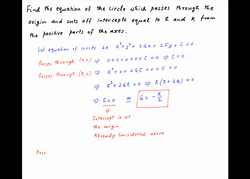 Find the equation of the circle which passes through the
origin and cuts off intercepts equal to h and k from
the positive parts of the axes.
Let equation of circle be x²+y²+2Gx+2Fy+C=0
Passes through (0,0) ⇒ 0+0+0+0+C=0 ⇒ C=0
Passes through (h,0) ⇒ h²+0+2Gh+0+0=0
⇒ h²+2Gh=0 ⇒ h(h+2G)=0
⇒ h=0 or G=-h/2
Intercept is at
the origin.
Already considered above
Pass